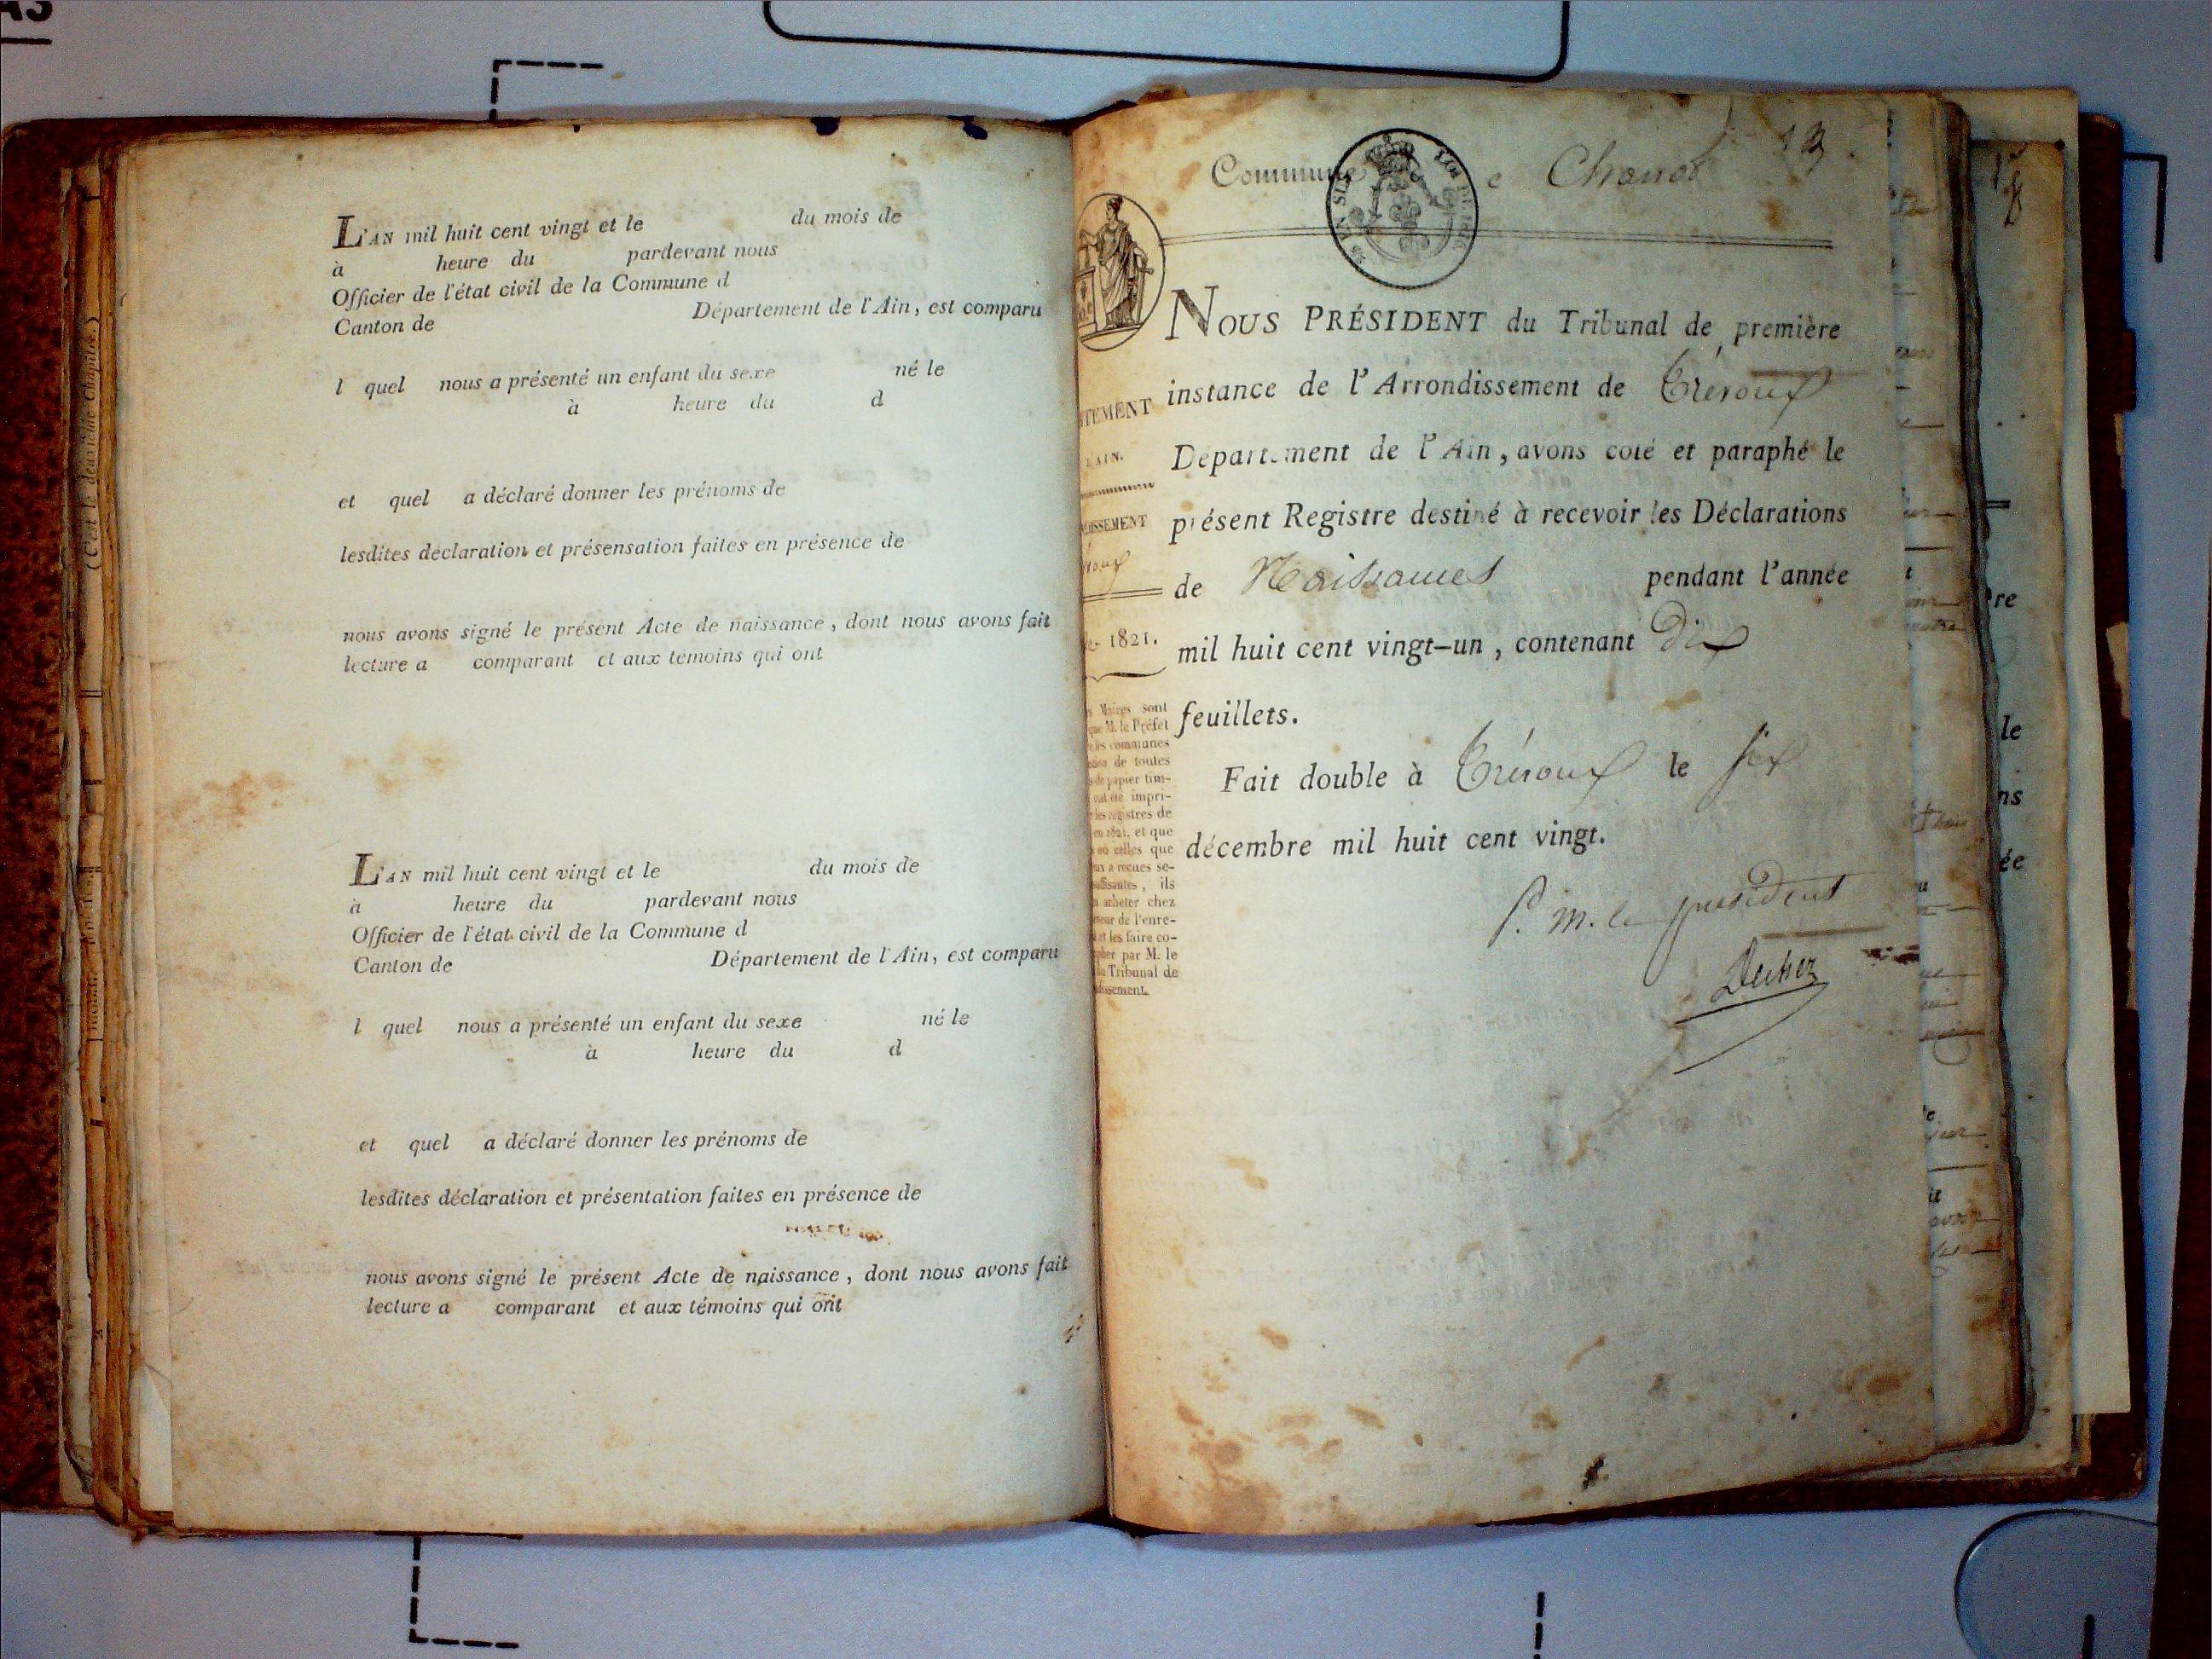 L'AN mil huit cent vingt et le du mois de
à heure du pardevant nous
Officier de l'état civil de la Commune d
Canton de Département de l'Ain, est comparu
l quel nous a présenté un enfant du sexe né le
à heure du d
et quel a déclaré donner les prénoms de
lesdites déclaration et présensation faites en présence de
nous avons signé le présent Acte de naissance, dont nous avons fait
lecture a comparant et aux témoins qui ont
L'AN mil huit cent vingt et le du mois de
à heure du pardevant nous
Officier de l'état civil de la Commune d
Canton de Département de l'Ain, est comparu
l quel nous a présenté un enfant du sexe né le
à heure du d
et quel a déclaré donner les prénoms de
lesdites déclaration et présentation faites en présence de
nous avons signé le présent Acte de naissance, dont nous avons fait
lecture a comparant et aux témoins qui ont
Commune e
NOUS PRÉSIDENT du Tribunal de première
instance de l'Arrondissement de Trévoux
Département de l'Ain, avons coté et paraphé le
présent Registre destiné à recevoir les Déclarations
de Naissances pendant l'année
mil huit cent vingt-un, contenant Dix
feuillets.
Fait double à Trévoux le six
décembre mil huit cent vingt.
P. M. le président
TEMENT
AIN.
ISSEMENT
1821.
Maires sont
que M. le Préfet
les communes
de toutes
de papier tim-
ont été impri-
les registres de
en 1821, et que
où celles que
a reçues se-
suffisantes, ils
acheter chez
de l'enre-
et les faire co-
par M. le
Tribunal de
re
le
ns
ée
A3